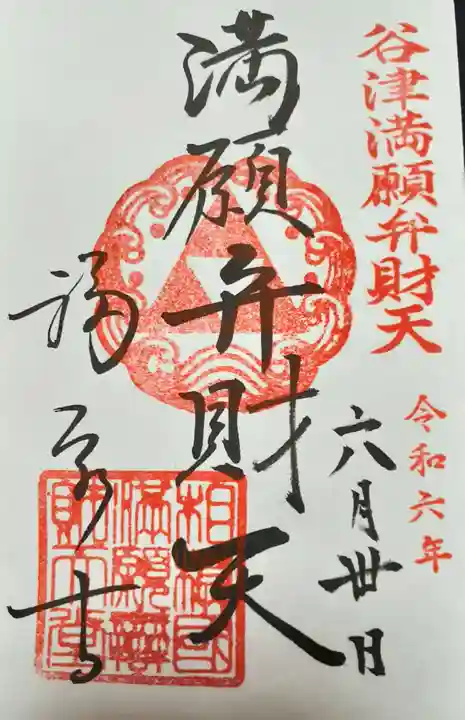 谷津満願弁財天
令和六年
六月卅日
満願弁財天
福泉寺